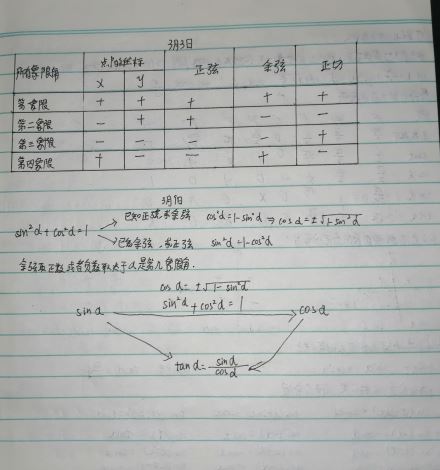 3月3日
所在象限角 点P的坐标 正弦 余弦 正切
x y
第一象限 + + + + +
第二象限 - + + - -
第三象限 - - - - +
第四象限 + - - + -
3月1日
sin²α+cos²α=1
已知正弦,求余弦 cos²α=1-sin²α ⇒ cosα=±√1-sin²α
已知余弦,求正弦 sin²α=1-cos²α
余弦取正数或者负数取决于α是第几象限角.
cosα=±√1-sin²α
sin²α+cos²α=1
sinα cosα
tanα=sinα/cosα